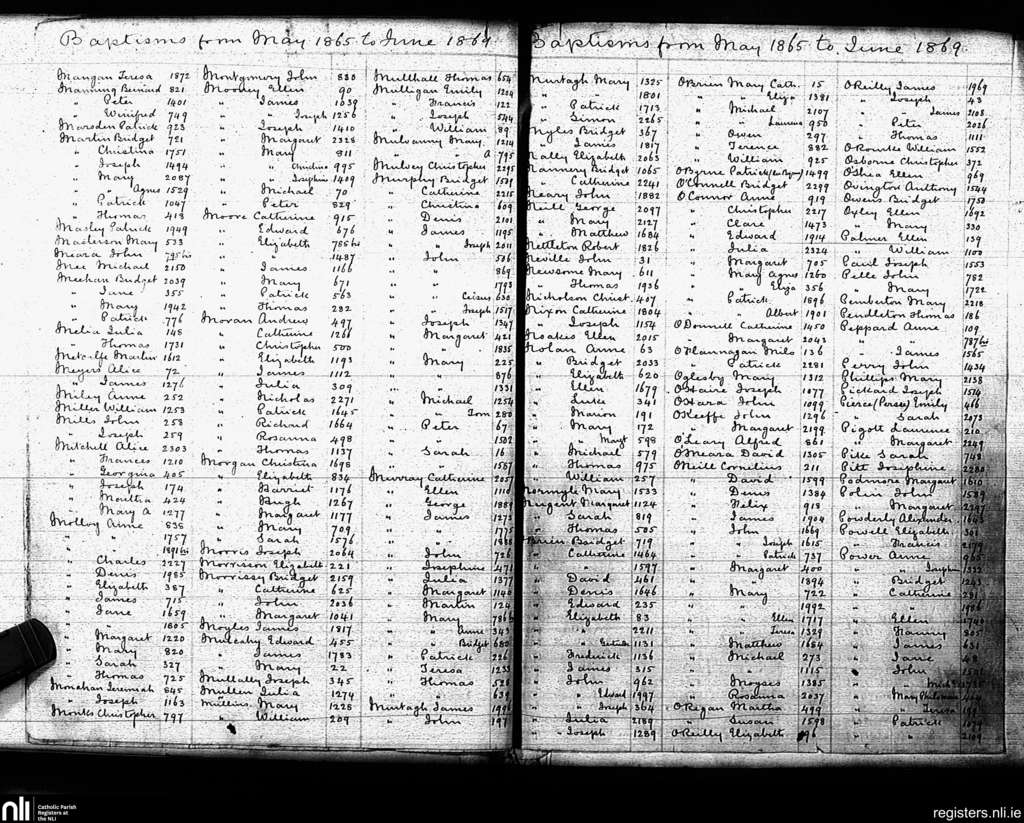 Baptisms from May 1865 to June 1869.
Mangan Teresa 1872
Manning Bernard 821
" Peter 1401
" Winifred 749
Marsden Patrick 923
Martin Bridget 721
" Christina 1751
" Joseph 1494
" Mary 2087
" " Agnes 1529
" Patrick 1047
" Thomas 418
Masley Patrick 1949
Masterson Mary 533
Meara John 795 bis
Mee Michael 2150
Meehan Bridget 2039
" Jane 355
" Mary 1942
" Patrick 776
Melia Julia 145
" Thomas 1731
Metcalfe Martin 1612
Meyers Alice 72
" James 1276
Miley Anne 252
Miller William 1253
Mills John 258
" Joseph 259
Mitchell Alice 2303
" Frances 1210
" Georgina 405
" Joseph 174
" Martha 424
" Mary A 1277
Molloy Anne 838
" " 1757
" " 1891 bis
" Charles 2227
" Denis 1985
" Elizabeth 387
" James 715
" Jane 1659
" " 1805
" Margaret 1220
" Mary 820
" Sarah 327
" Thomas 725
Monahan Jeremiah 845
" Joseph 1163
Monks Christopher 797
Montgomery John 880
Mooney Ellen 90
" James 1039
" " Joseph 1256
" Joseph 1410
" Margaret 2328
" Mary 811
" " Christine 995
" " Josephine 1409
" Michael 70
" Peter 829
Moore Catherine 915
" Edward 676
" Elizabeth 785 bis
" " 1487
" James 1166
" Mary 671
" Patrick 563
" Thomas 282
Moran Andrew 497
" Catherine 1266
" Christopher 500
" Elizabeth 1193
" James 1112
" Julia 309
" Nicholas 2271
" Patrick 1645
" Richard 1664
" Rosanna 498
" Thomas 1137
Morgan Christina 1698
" Elizabeth 834
" Harriet 1176
" Hugh 1267
" Margaret 1177
" Mary 709
" Sarah 1576
Morris Joseph 2064
Morrison Elizabeth 221
Morrissy Bridget 2159
" Catherine 625
" John 2036
" Margaret 1041
Moyles James 1817
Mulcahy Edward 455
" James 1783
" Mary 22
Mullally Joseph 345
Mullen Julia 1274
Mullins Mary 1228
" William 209
Mullhall Thomas 654
Mulligan Emily 1204
" Francis 122
" Joseph 544
" William 89
Mulvanny Mary 1214
" " A 795
Mulvey Christopher 2295
Murphy Bridget 1509
" Catherine 2215
" Christina 609
" Denis 2101
" James 1195
" " Joseph 2011
" John 506
" " 869
" " 1793
" " 630
" " Joseph 1517
" Joseph 1347
" Margaret 421
" " 1835
" Mary 225
" " 876
" " 1331
" Michael 1254
" " Tom 280
" Peter 67
" " 1502
" Sarah 16
" " 1587
Murray Catherine 2057
" Ellen 1110
" George 1889
" James 1273
" " 1775
" " 1888
" John 726
" Josephine 471
" Julia 1377
" Margaret 1140
" Martin 124
" Mary 786
" " Anne 343
" " Bridget 680
" Patrick 226
" Teresa 1233
" Thomas 528
" " 639
Murtagh James
" John 197
Baptisms from May 1865 to June 1869.
Murtagh Mary 1325
" " 1801
" Patrick 1713
" Simon 2265
Myles Bridget 367
" James 1817
Nally Elizabeth 2063
Nannery Bridget 1065
" Catherine 2241
Neary John 1882
Neill George 2097
" Mary 2127
" Matthew 1684
Nettleton Robert 1826
Neville John 31
Newsome Mary 611
" Thomas 1936
Nicholson Christ. 407
Nixon Catherine 1804
" Joseph 1154
Noakes Ellen 2015
Nolan Anne 63
" Bridget 2033
" Elizabeth 620
" Ellen 1679
" Luke 341
" Marion 191
" Mary 172
" " Margt 598
" Michael 579
" Thomas 975
" William 257
Normyle Mary 1533
Nugent Margaret 1124
" Sarah 819
" Thomas 505
OBrien Bridget 719
" Catherine 1464
" " 1597
" David 461
" Denis 1646
" Edward 235
" Elizabeth 83
" " 2211
" " 1131
" Frederick 1136
" James 315
" John 962
" " Edward 1997
" " Joseph 364
" Julia 2189
" Joseph 1289
OBrien Mary Cath. 15
" " Eliza 1381
" Michael 2107
" " Laurence 950
" Owen 297
" Terence 882
" William 925
OByrne Patrick 1499
OConnell Bridget 2299
OConnor Anne 919
" Christopher 2217
" Clare 1473
" Edward 1914
" Julia 2324
" Margaret 705
" Mary Agnes 1260
" " Eliza 356
" Patrick 1896
" " Albert 1901
ODonnell Catherine 1450
" Margaret 2043
OFlannagan Milo 136
" Patrick 2281
Oglesby Mary 1312
OHaire Joseph 1077
OHara John 1099
OKeeffe John 1296
" Margaret 2199
OLeary Alfred 861
OMeara David 1305
ONeill Cornelius 211
" David 1599
" Denis 1384
" Felix 918
" James 1904
" John 1669
" " Joseph 1615
" " Patrick 737
" Margaret 400
" " 1894
" Mary 722
" " 1992
" " Ellen 1717
" " Teresa 1329
" Matthew 1654
" Michael 273
" " 1115
" Moyses 1385
" Rosanna 2037
ORegan Martha 499
" Susan 1598
OReilly Elizabeth 96
OReilly James 1969
" Joseph 43
" " James 2108
" Peter 2026
" Thomas 1111
ORourke William 1552
Osborne Christopher 372
OShea Ellen 969
Ovington Anthony 1544
Owens Bridget 1750
Oxley Ellen 1692
" Mary 330
Palmer Ellen 139
" William 1100
Paul Joseph 1553
Pelle John 782
" Mary 1722
Pemberton Mary 2218
Pendleton Thomas 186
Peppard Anne 109
" " 787 bis
" James 1565
Perry John 1434
Phillips Mary 2138
Pickard Joseph 1574
Pierce (Perse) Emily 466
" Sarah 2073
Pigott Laurence 210
" Margaret 2249
Pitt Sarah 748
Pitt Josephine 2280
Podmore Margaret 1610
Polin John 1589
" Margaret 2397
Powderly Alexander 1646
Powell Elizabeth 301
" Francis
Power Anne 965
" " Joseph 1332
" Bridget 1243
" Catherine 291
" " 1986
" Ellen 1740
" Fanny 805
" James 631
" Jane 48
" John
" "
" Mary
" " Teresa
" Patrick
" " 2109
nli Catholic Parish
Registers at
the NLI
registers.nli.ie